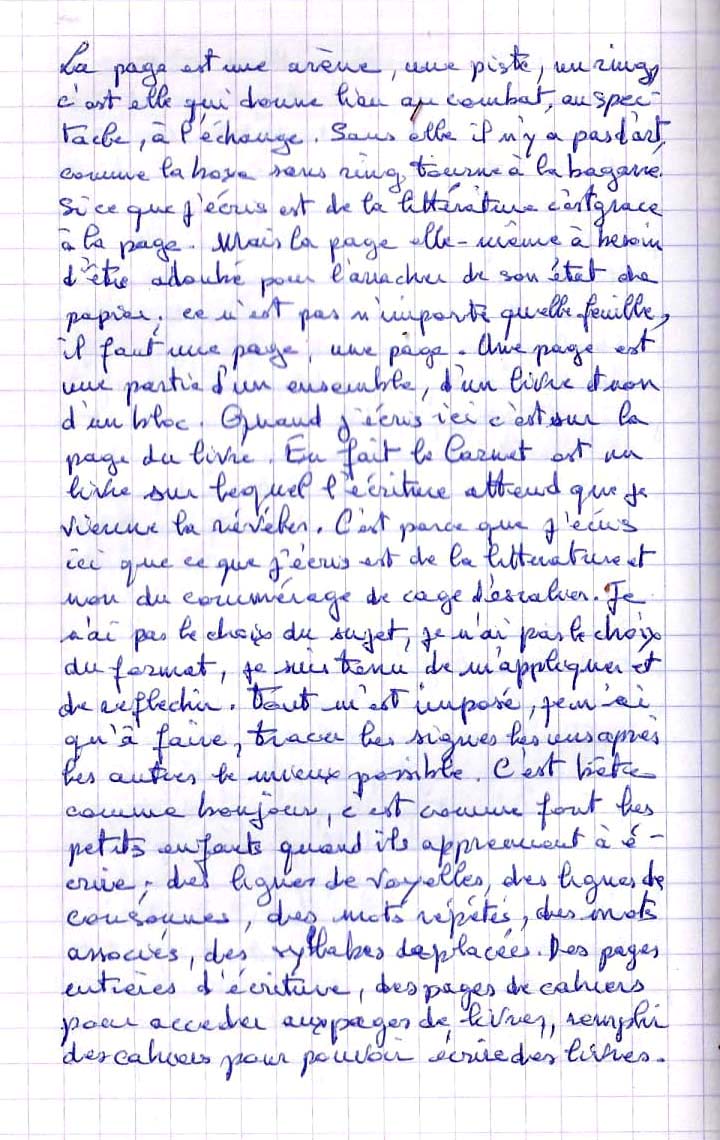 La page est une arène, une piste, un ring,
c'est elle qui donne lieu au combat, au spec-
tacle, à l'échange. Sans elle il n'y a pas d'art,
comme la boxe sans ring, tourne à la bagarre.
Si ce que j'écris est de la littérature c'est grace
à la page. Mais la page elle-même à besoin
d'être adoubé pour l'arracher de son état de
papier, ce n'est pas n'importe quelle feuille,
il faut une page, une page. Une page est
une partie d'un ensemble, d'un livre et non
d'un bloc. Quand j'écris ici c'est sur la
page du livre. En fait le Carnet est un
livre sur lequel l'écriture attend que je
vienne la révéler. C'est parce que j'écris
ici que ce que j'écris est de la litterature et
non du commérage de cage d'escalier. Je
n'ai pas le choix du sujet, je n'ai pas le choix
du format, je suis tenu de m'appliquer et
de reflechir. Tout m'est imposé, je n'ai
qu'à faire, tracer les signes les uns après
les autres le mieux possible. C'est bête
comme bonjour, c'est comme font les
petits enfants quand ils apprennent à é-
crire, des lignes de voyelles, des lignes de
consonnes, des mots répétés, des mots
associés, des syllabes déplacées. Des pages
entières d'écriture, des pages de cahiers
pour acceder aux pages de livres, remplir
des cahiers pour pouvoir écrire des livres.